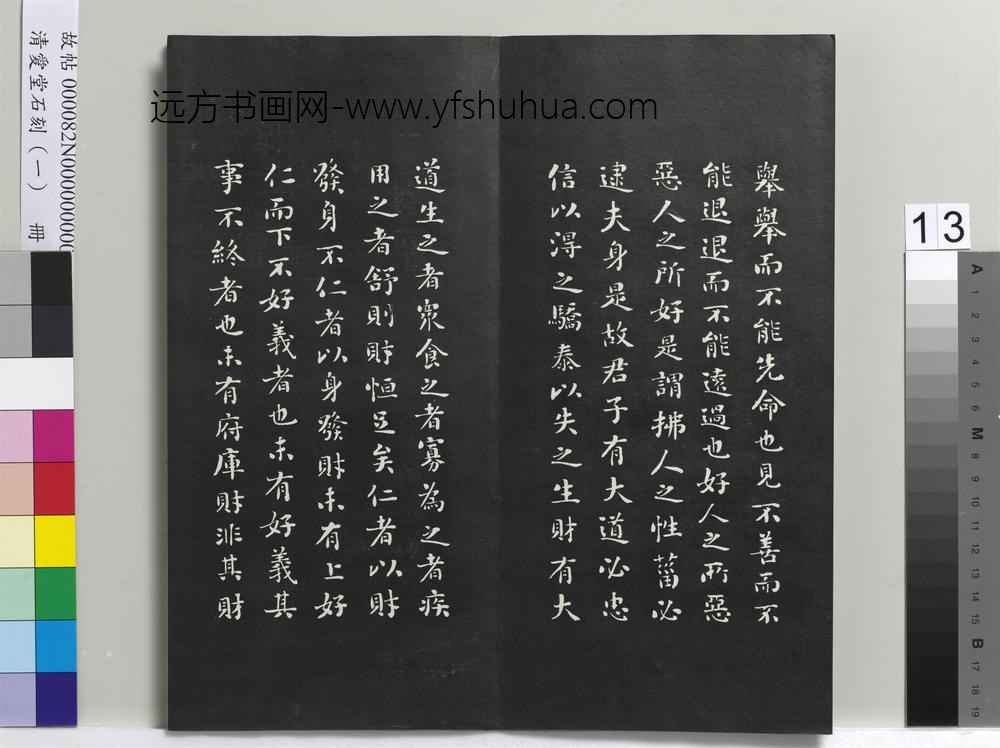 故帖 000082N000000000
清愛堂石刻（一） 冊
远方书画网-www.yfshuhua.com
舉舉而不能先命也見不善而不
能退退而不能遠過也好人之所惡
惡人之所好是謂拂人之性菑必
逮夫身是故君子有大道必忠
信以得之驕泰以失之生財有大
道生之者眾食之者寡為之者疾
用之者舒則財恒足矣仁者以財
發身不仁者以身發財未有上好
仁而下不好義者也未有好義其
事不終者也未有府庫財非其財
13
A
1
2
3
4
5
6
M
8
9
10
11
12
13
14
15
B
17
18
19